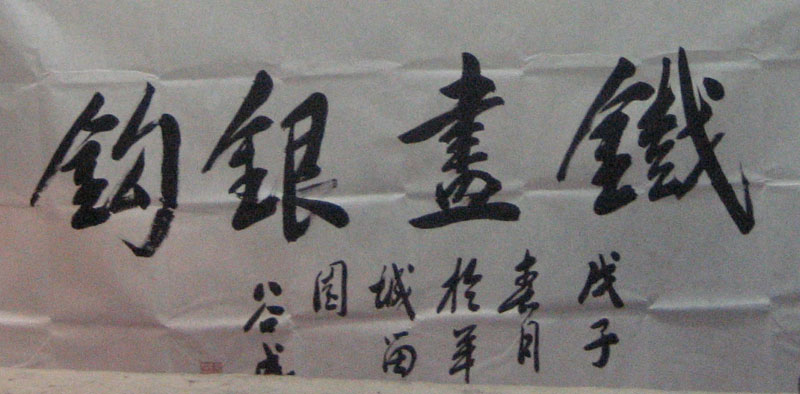 鐵畫銀鈎
戊子
春月
於羊
城留
園
谷